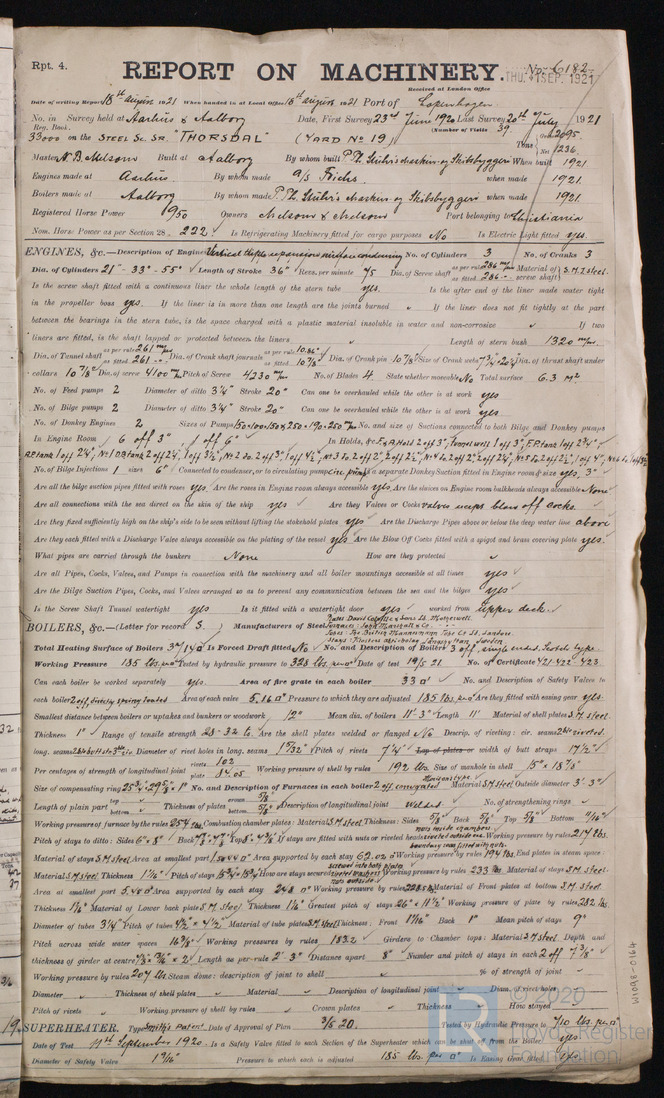 Rpt. 4.
REPORT ON MACHINERY.
No. 6182
THU. 1 SEP. 1921
Received at London Office
Date of writing Report 18th August 1921 When handed in at Local Office 18th August 1921 Port of Copenhagen
No. in Survey held at Aarhus & Aalborg Date, First Survey 23rd June 1920 Last Survey 20th July 1921
Reg. Book. (Number of Visits 39
33000 on the STEEL SC. SR. "THORSDAL" (YARD No 19) Tons Gross 2095 Net 1236
Master N. B. Nelsen Built at Aalborg By whom built When built 1921
Engines made at Aarhus By whom made A/S Frichs when made 1921.
Boilers made at Aalborg By whom made when made 1921.
Registered Horse Power Owners Port belonging to Christiania
Nom. Horse Power as per Section 28 222 Is Refrigerating Machinery fitted for cargo purposes No Is Electric Light fitted yes
ENGINES, &c.—Description of Engines Vertical triple expansion surface condensing No. of Cylinders 3 No. of Cranks 3
Dia. of Cylinders 21" - 33" - 55" Length of Stroke 36" Revs. per minute 75 Dia. of Screw shaft as per rule 286 as fitted 286 Material of screw shaft S.M. Steel
Is the screw shaft fitted with a continuous liner the whole length of the stern tube yes. Is the after end of the liner made water tight
in the propeller boss yes. If the liner is in more than one length are the joints burned If the liner does not fit tightly at the part
between the bearings in the stern tube, is the space charged with a plastic material insoluble in water and non-corrosive If two
liners are fitted, is the shaft lapped or protected between the liners Length of stern bush 1320 m/m.
Dia. of Tunnel shaft as per rule 261 m/m as fitted 261 Dia. of Crank shaft journals as per rule 10.86" as fitted 10 7/8" Dia. of Crank pin 10 7/8" Size of Crank webs Dia. of thrust shaft under
collars 10 7/8" Dia. of screw 4100 m/m Pitch of Screw 4230 m/m No. of Blades 4 State whether moveable No Total surface 6.3 M²
No. of Feed pumps 2 Diameter of ditto 3 1/4" Stroke 20" Can one be overhauled while the other is at work yes
No. of Bilge pumps 2 Diameter of ditto 3 1/4" Stroke 20" Can one be overhauled while the other is at work yes
No. of Donkey Engines 2 Sizes of Pumps No. and size of Suctions connected to both Bilge and Donkey pumps
In Engine Room 6 off 3" 1 off 6" In Holds, &c.
No. of Bilge Injections 1 sizes 6" Connected to condenser, or to circulating pump circ. pump Is a separate Donkey Suction fitted in Engine room & size yes, 3"
Are all the bilge suction pipes fitted with roses yes Are the roses in Engine room always accessible yes Are the sluices on Engine room bulkheads always accessible None
Are all connections with the sea direct on the skin of the ship yes Are they Valves or Cocks valves except blow off cocks
Are they fixed sufficiently high on the ship's side to be seen without lifting the stokehold plates yes Are the Discharge Pipes above or below the deep water line above
Are they each fitted with a Discharge Valve always accessible on the plating of the vessel yes Are the Blow Off Cocks fitted with a spigot and brass covering plate yes.
What pipes are carried through the bunkers None How are they protected
Are all Pipes, Cocks, Valves, and Pumps in connection with the machinery and all boiler mountings accessible at all times yes
Are the Bilge Suction Pipes, Cocks, and Valves arranged so as to prevent any communication between the sea and the bilges yes
Is the Screw Shaft Tunnel watertight yes Is it fitted with a watertight door yes worked from upper deck
BOILERS, &c.—(Letter for record S.) Manufacturers of Steel Plates David Colville & Sons Ld. Motherwell
Total Heating Surface of Boilers Is Forced Draft fitted No No. and Description of Boilers 3 off, single ended, Scotch type
Working Pressure 185 lbs. Tested by hydraulic pressure to 328 lbs. Date of test 19/5 21 No. of Certificate 421. 422. 423.
Can each boiler be worked separately yes. Area of fire grate in each boiler 33 No. and Description of Safety Valves to
each boiler 2 off, directly spring loaded Area of each valve 5.16 Pressure to which they are adjusted 185 lbs. Are they fitted with easing gear yes.
Smallest distance between boilers or uptakes and bunkers or woodwork 12" Mean dia. of boilers 11'-3" Length 11' Material of shell plates S.M. Steel
Thickness 1" Range of tensile strength 28-32 to. Are the shell plates welded or flanged No Descrip. of riveting: cir. seams dble riveted.
long. seams Diameter of rivet holes in long. seams 1 1/32" Pitch of rivets 7 1/4" Lap of plates or width of butt straps 17 1/2"
Per centages of strength of longitudinal joint rivets 102 plate 84.05 Working pressure of shell by rules 192 lbs Size of manhole in shell 15" x 18 3/8"
Size of compensating ring No. and Description of Furnaces in each boiler 2 off corrugated Material S.M. Steel Outside diameter 3'-3"
Length of plain part top bottom Thickness of plates crown 5/8" bottom 5/8" Description of longitudinal joint Welded No. of strengthening rings
Working pressure of furnace by the rules 254 lbs Combustion chamber plates: Material S.M. Steel Thickness: Sides 5/8" Back 5/8" Top 5/8" Bottom 11/16"
Pitch of stays to ditto: Sides 6" x 8" Back Top If stays are fitted with nuts or riveted heads Working pressure by rules 217 lbs.
Material of stays S.M. Steel Area at smallest part Area supported by each stay Working pressure by rules 194 lbs. End plates in steam space:
Material S.M. Steel Thickness 1 1/16" Pitch of stays How are stays secured Working pressure by rules 233 lbs Material of stays S.M. Steel
Area at smallest part Area supported by each stay 248 Working pressure by rules Material of Front plates at bottom S.M. Steel.
Thickness Material of Lower back plate S.M. Steel Thickness Greatest pitch of stays Working pressure of plate by rules 282 lbs.
Diameter of tubes 3 1/4" Pitch of tubes 4 1/2" x 4 1/2" Material of tube plates S.M. Steel Thickness: Front Back 1" Mean pitch of stays 9"
Pitch across wide water spaces Working pressures by rules 183.2 Girders to Chamber tops: Material S.M. Steel Depth and
thickness of girder at centre Length as per rule 2'-3" Distance apart 8" Number and pitch of stays in each 2 off 7 3/8"
Working pressure by rules 207 lbs Steam dome: description of joint to shell % of strength of joint
Diameter Thickness of shell plates Material Description of longitudinal joint Diam. of rivet holes
Pitch of rivets Working pressure of shell by rules Crown plates Thickness How stayed
SUPERHEATER. Type Smith's Patent Date of Approval of Plan 3/5 20. Tested by Hydraulic Pressure to 710 lbs. per
Date of Test 11th September 1920 Is a Safety Valve fitted to each Section of the Superheater which can be shut off from the Boiler yes
Diameter of Safety Valve 1 9/16" Pressure to which each is adjusted 185 lbs. per Is Easing Gear fitted yes
W1098-0164
© 2020
Lloyd's Register
Foundation